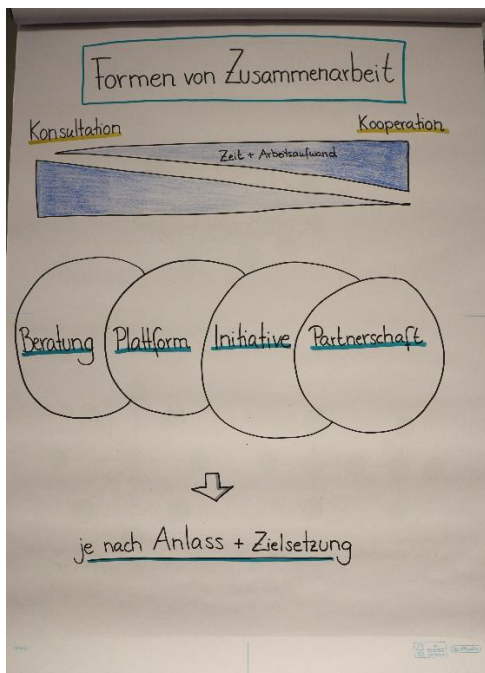 Formen von Zusammenarbeit
Konsultation
Kooperation
Zeit + Arbeitsaufwand
Beratung
Plattform
Initiative
Partnerschaft
je nach Anlass + Zielsetzung